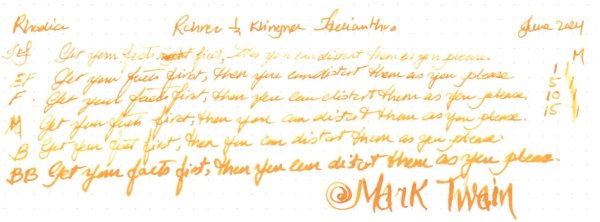 Rhodia Rohrer & Klingner Helianthus June 2024
IEF Get your facts first, then you can distort them as you please. M
EF Get your facts first, then you can distort them as you please 1
F Get your facts first, then you can distort them as you please. 5
M Get your facts first, then you can distort them as you please. 10
B Get your facts first, then you can distort them as you please. 15
BB Get your facts first, then you can distort them as you please.
@Mark Twain